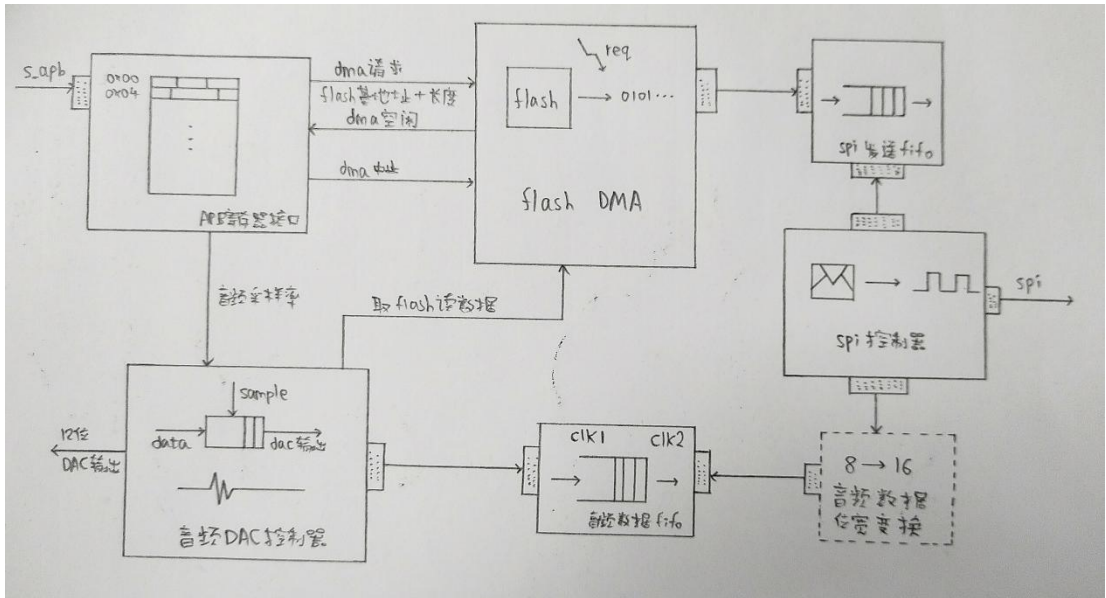 s_apb
0x00
0x04
APB寄存器接口
dma请求
flash基地址+长度
dma空闲
dma中止
req
flash
0101...
flash DMA
spi发送fifo
spi
spi控制器
音频采样率
取flash读数据
sample
data
dac输出
12位
DAC输出
音频DAC控制器
clk1
clk2
音频数据fifo
8 → 16
音频数据
位宽变换